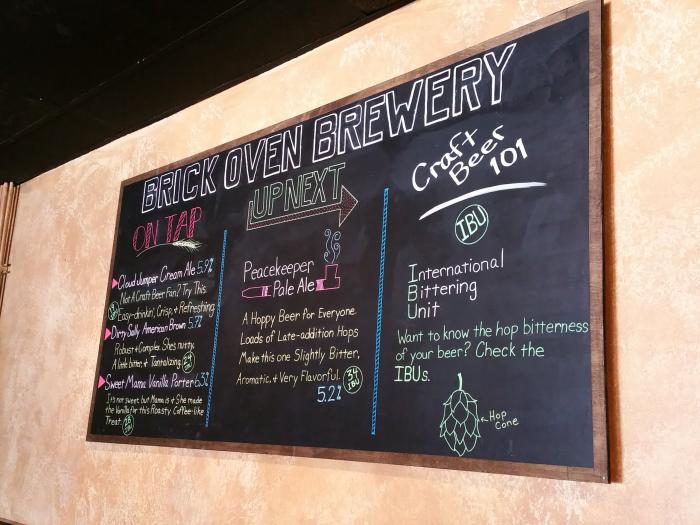 BRICK OVEN BREWERY
ON TAP
Cloud Jumper Cream Ale 5.9%
Not A Craft Beer Fan? Try This
Easy-drinkin', Crisp, + Refreshing
Dirty Sally American Brown 5.7%
Robust + Complex. She's nutty,
A little bitter, + Tantalizing.
Sweet Mama Vanilla Porter 6.3%
It's not sweet but Mama is + She made
the Vanilla for this Roasty Coffee-like
Treat.
UP NEXT
Peacekeeper
Pale Ale
A Hoppy Beer for Everyone.
Loads of Late-addition Hops
Make this one Slightly Bitter,
Aromatic, + Very Flavorful.
34
IBU
5.2%
Craft
Beer
101
IBU
International
Bittering
Unit
Want to know the hop bitterness
of your beer? Check the
IBUs.
Hop
Cone